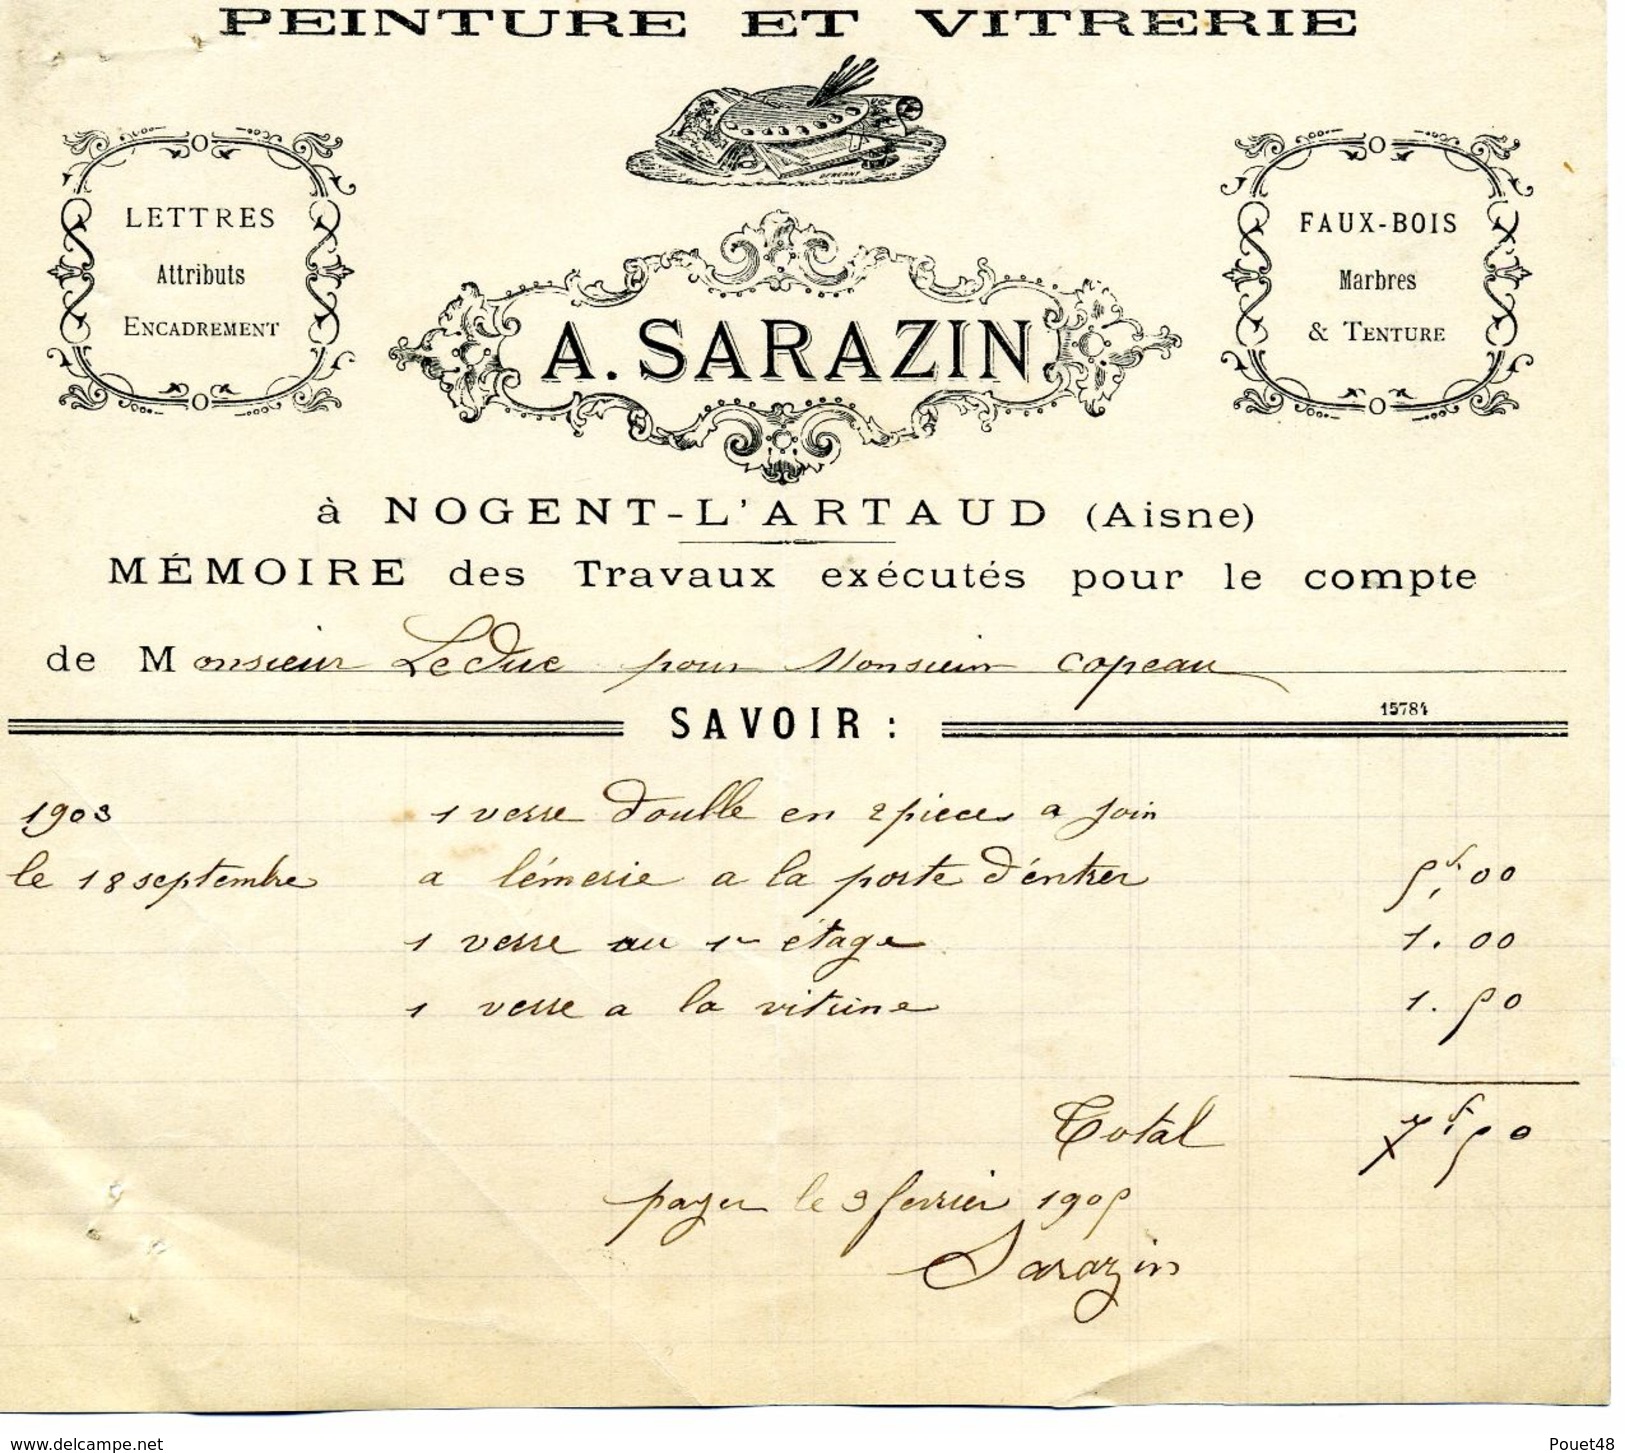 PEINTURE ET VITRERIE
LETTRES
Attributs
ENCADREMENT
A. SARAZIN
FAUX-BOIS
Marbres
& TENTURE
à NOGENT-L'ARTAUD (Aisne)
MÉMOIRE des Travaux exécutés pour le compte
de Monsieur Leduc pour Monsieur Copeau
SAVOIR :
15784
1903 1 verre double en 2 pieces a join
le 18 septembre a lémerie a la porte d'éntrer 5f,00
1 verre au 1er étage 1.00
1 verre a la vitrine 1.50
Total 7f,50
payer le 9 fevrier 1905
Sarazin
www.delcampe.net
Pouet48